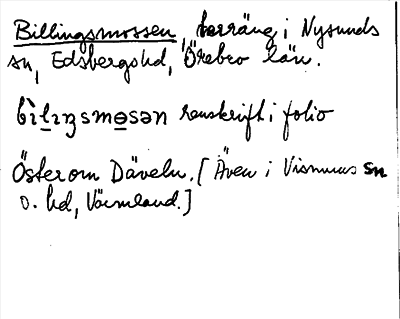 Billingsmossen, terräng i Nysunds
sn, Edsbergs hd, Örebro län.
bìlɪŋsmɵsən renskrift i folio
Öster om Däveln. [Även i Visnums sn
o. hd, Värmland.]